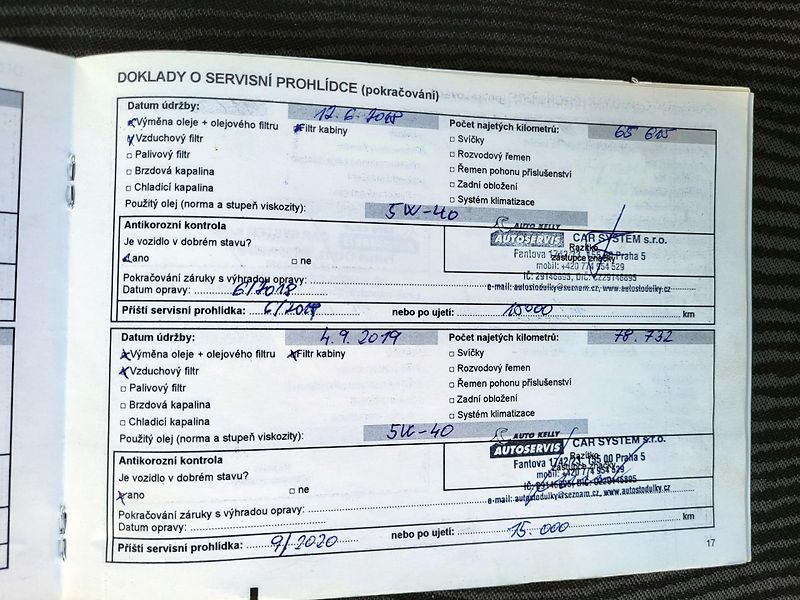 DOKLADY O SERVISNÍ PROHLÍDCE (pokračování)
Datum údržby: 12.6.2018
Výměna oleje + olejového filtru Filtr kabiny
Vzduchový filtr
Palivový filtr
Brzdová kapalina
Chladicí kapalina
Počet najetých kilometrů: 65 615
Svíčky
Rozvodový řemen
Řemen pohonu příslušenství
Zadní obložení
Systém klimatizace
Použitý olej (norma a stupeň viskozity): 5W-40
Antikorozní kontrola
Je vozidlo v dobrém stavu?
ano ne
Pokračování záruky s výhradou opravy:
Datum opravy: 6/2018
AUTO KELLY
AUTOSERVIS
CAR SYSTEM s.r.o.
Razítko
zástupce značky
Fantova 1742/23, 155 00 Praha 5
mobil: +420 774 954 529
e-mail: autostodulky@seznam.cz, www.autostodulky.cz
Příští servisní prohlídka: 6/2019 nebo po ujetí: 15000 km
Datum údržby: 4.9.2019
Výměna oleje + olejového filtru Filtr kabiny
Vzduchový filtr
Palivový filtr
Brzdová kapalina
Chladicí kapalina
Počet najetých kilometrů: 78.732
Svíčky
Rozvodový řemen
Řemen pohonu příslušenství
Zadní obložení
Systém klimatizace
Použitý olej (norma a stupeň viskozity): 5W-40
Antikorozní kontrola
Je vozidlo v dobrém stavu?
ano ne
Pokračování záruky s výhradou opravy:
Datum opravy:
AUTO KELLY
AUTOSERVIS
CAR SYSTEM s.r.o.
Razítko
zástupce značky
Fantova 1742/23, 155 00 Praha 5
mobil: +420 774 954 529
e-mail: autostodulky@seznam.cz, www.autostodulky.cz
Příští servisní prohlídka: 9/2020 nebo po ujetí: 15.000 km
17